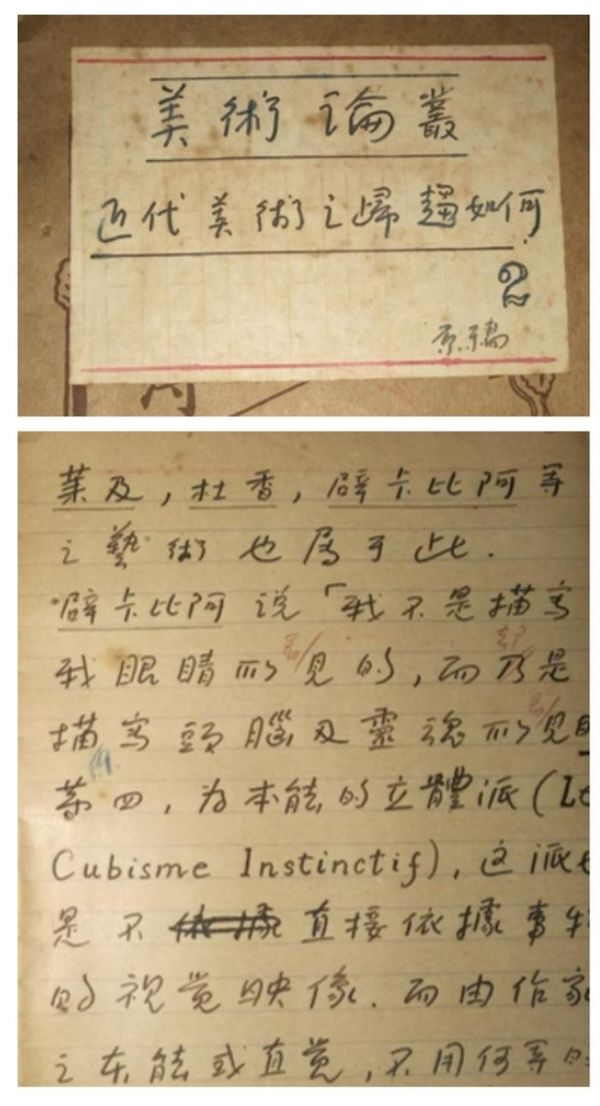 美術論叢
近代美術之歸趨如何
2
原稿
莱及,杜香,辟卡比阿等
之藝術也属于此.
辟卡比阿说「我不是描写
我眼睛所見的,而乃是
描写頭腦及靈魂所見的
第四,为本能的立體派(Le
Cubisme Instinctif),这派
是不直接依據事物
的視觉映像.而由作家
之本能或直觉,不用何等的